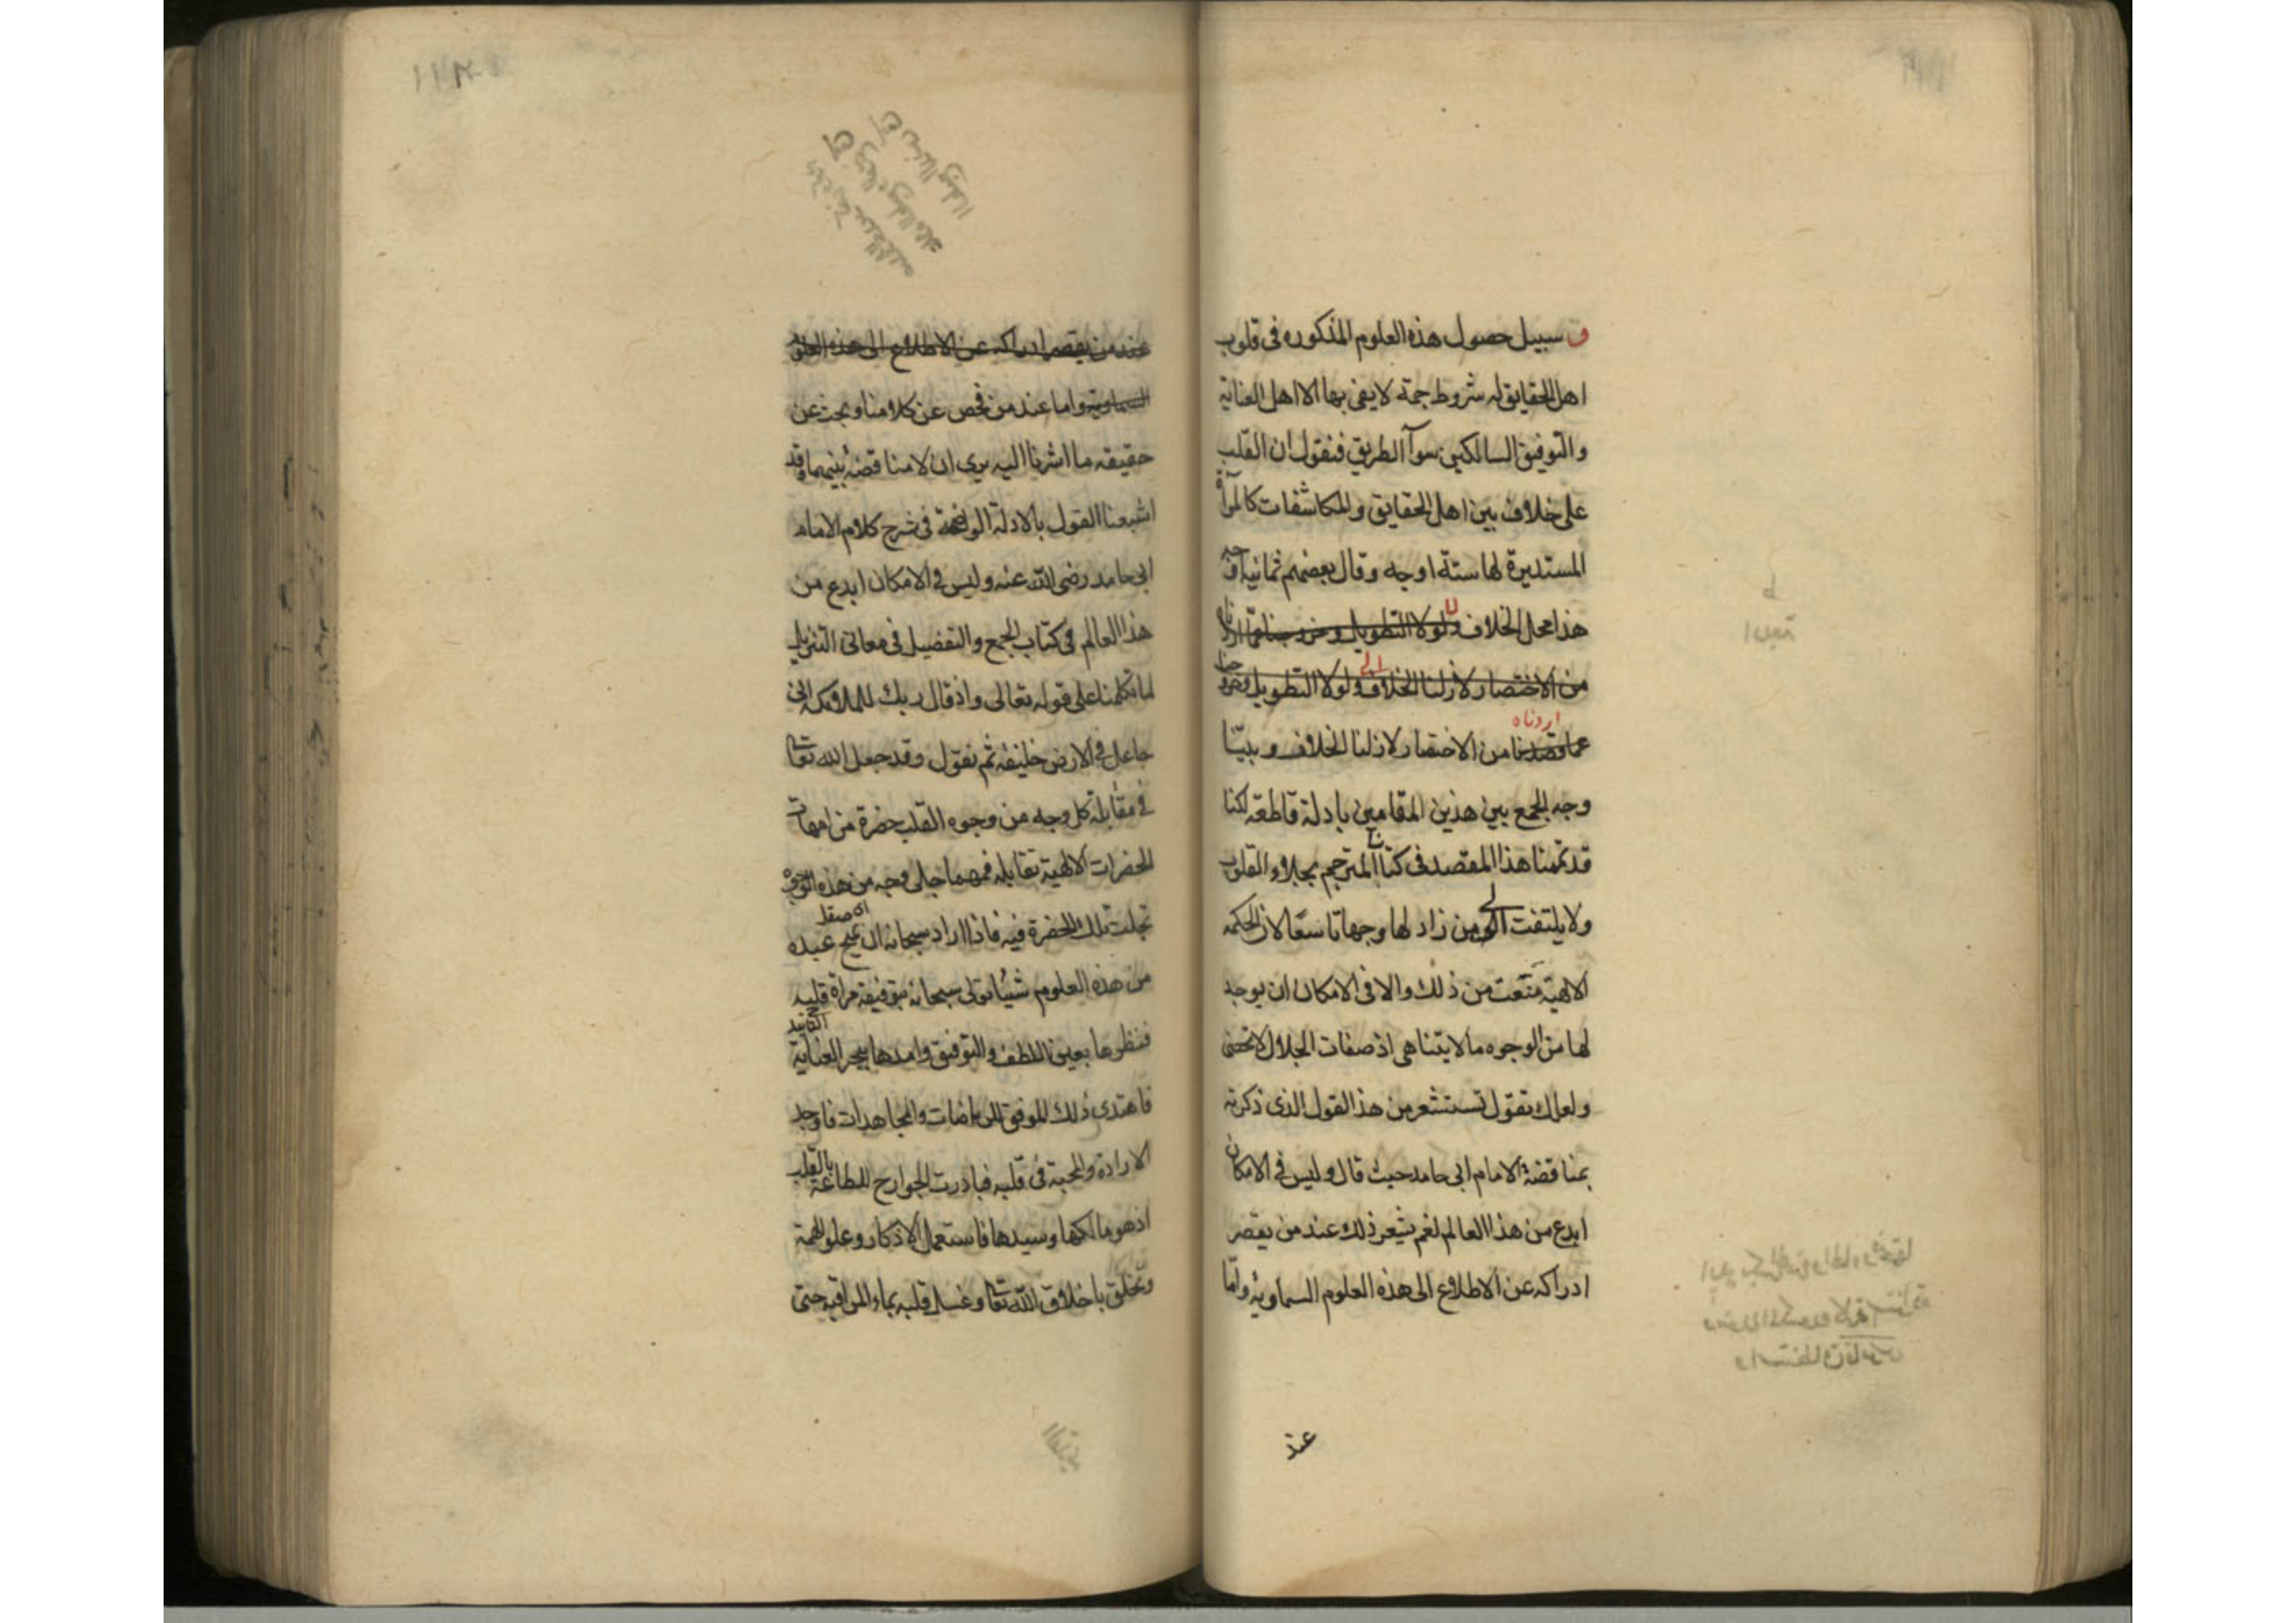 و سبيل حصول هذه العلوم المذكوره فى قلوب
اهل الحقايق له شروط جمة لا يفى بها الا اهل العناية
والتوفيق السالكين سوآ الطريق فنقول ان القلب
على خلاف بين اهل الحقايق والمكاشفات كالمرآة
المستديرة لها ستة اوجه وقال بعضهم ثمانية اوجه
هذا محل الخلاف ولولا التطويل وخروجنا عما اردناه
من الاختصار لازلنا الخلاف ولولا التطويل وخروجنا
اردناه
عما قصدنا من الاختصار لازلنا الخلاف وبينّا
وجه الجمع بين هذين المقامين بادلة قاطعة لكنا
قد تممنا هذا المقصد فى كتابنا المترجم بجلاء القلوب
ولا يلتفت الى من زاد لها وجها تاسعا لان الحكمه
الالهية منعت من ذلك والا فى الامكان ان يوجد
لها من الوجوه ما لا يتناهى اذ صفات الجلال لا تحصى
ولعلك تقول تستشعر من هذا القول الذى ذكرته
بمناقضة الامام ابى حامد حيث قال وليس فى الامكان
ابدع من هذا العالم نعم يشعر ذلك عند من يقصر
ادراكه عن الاطلاع الى هذه العلوم السماوية واما
عند
عند من يقصر ادراكه عن الاطلاع الى هذه العلوم
السماوية واما عند من فحص عن كلامنا وبحث عن
حقيقه ما اشرنا اليه يرى ان لا مناقضة بينهما وقد
اشبعنا القول بالادلة الواضحة فى شرح كلام الامام
ابى حامد رضى الله عنه وليس فى الامكان ابدع من
هذا العالم فى كتاب الجمع والتفضيل فى معانى التنزيل
لما تكلمنا على قوله تعالى واذ قال ربك للملائكة انى
جاعل فى الارض خليفة ثم نقول وقد جعل الله تعالى
فى مقابلة كل وجه من وجوه القلب حضرة من امهات
الحضرات الالهية تقابله فمهما جلى وجه من هذه الوجوه
تجلت تلك الحضرة فيه فاذا اراد سبحانه ان يمنح عبده
من هذه العلوم شيئا تولى سبحانه بتوفيقه مرآة قلبه
فنظرها بعين اللطف والتوفيق وامدها ببحر العناية
فاهتدى ذلك الموفق للرياضات والمجاهدات فاوجد
الارادة والمحبة فى قلبه فبادرت الجوارح للطاعة بالقلب
اذ هو مالكها وسيدها فاستعمل الاذكار وعلو الهمة
وتخلق باخلاق الله تعالى وغسل قلبه بماء المراقبه حتى